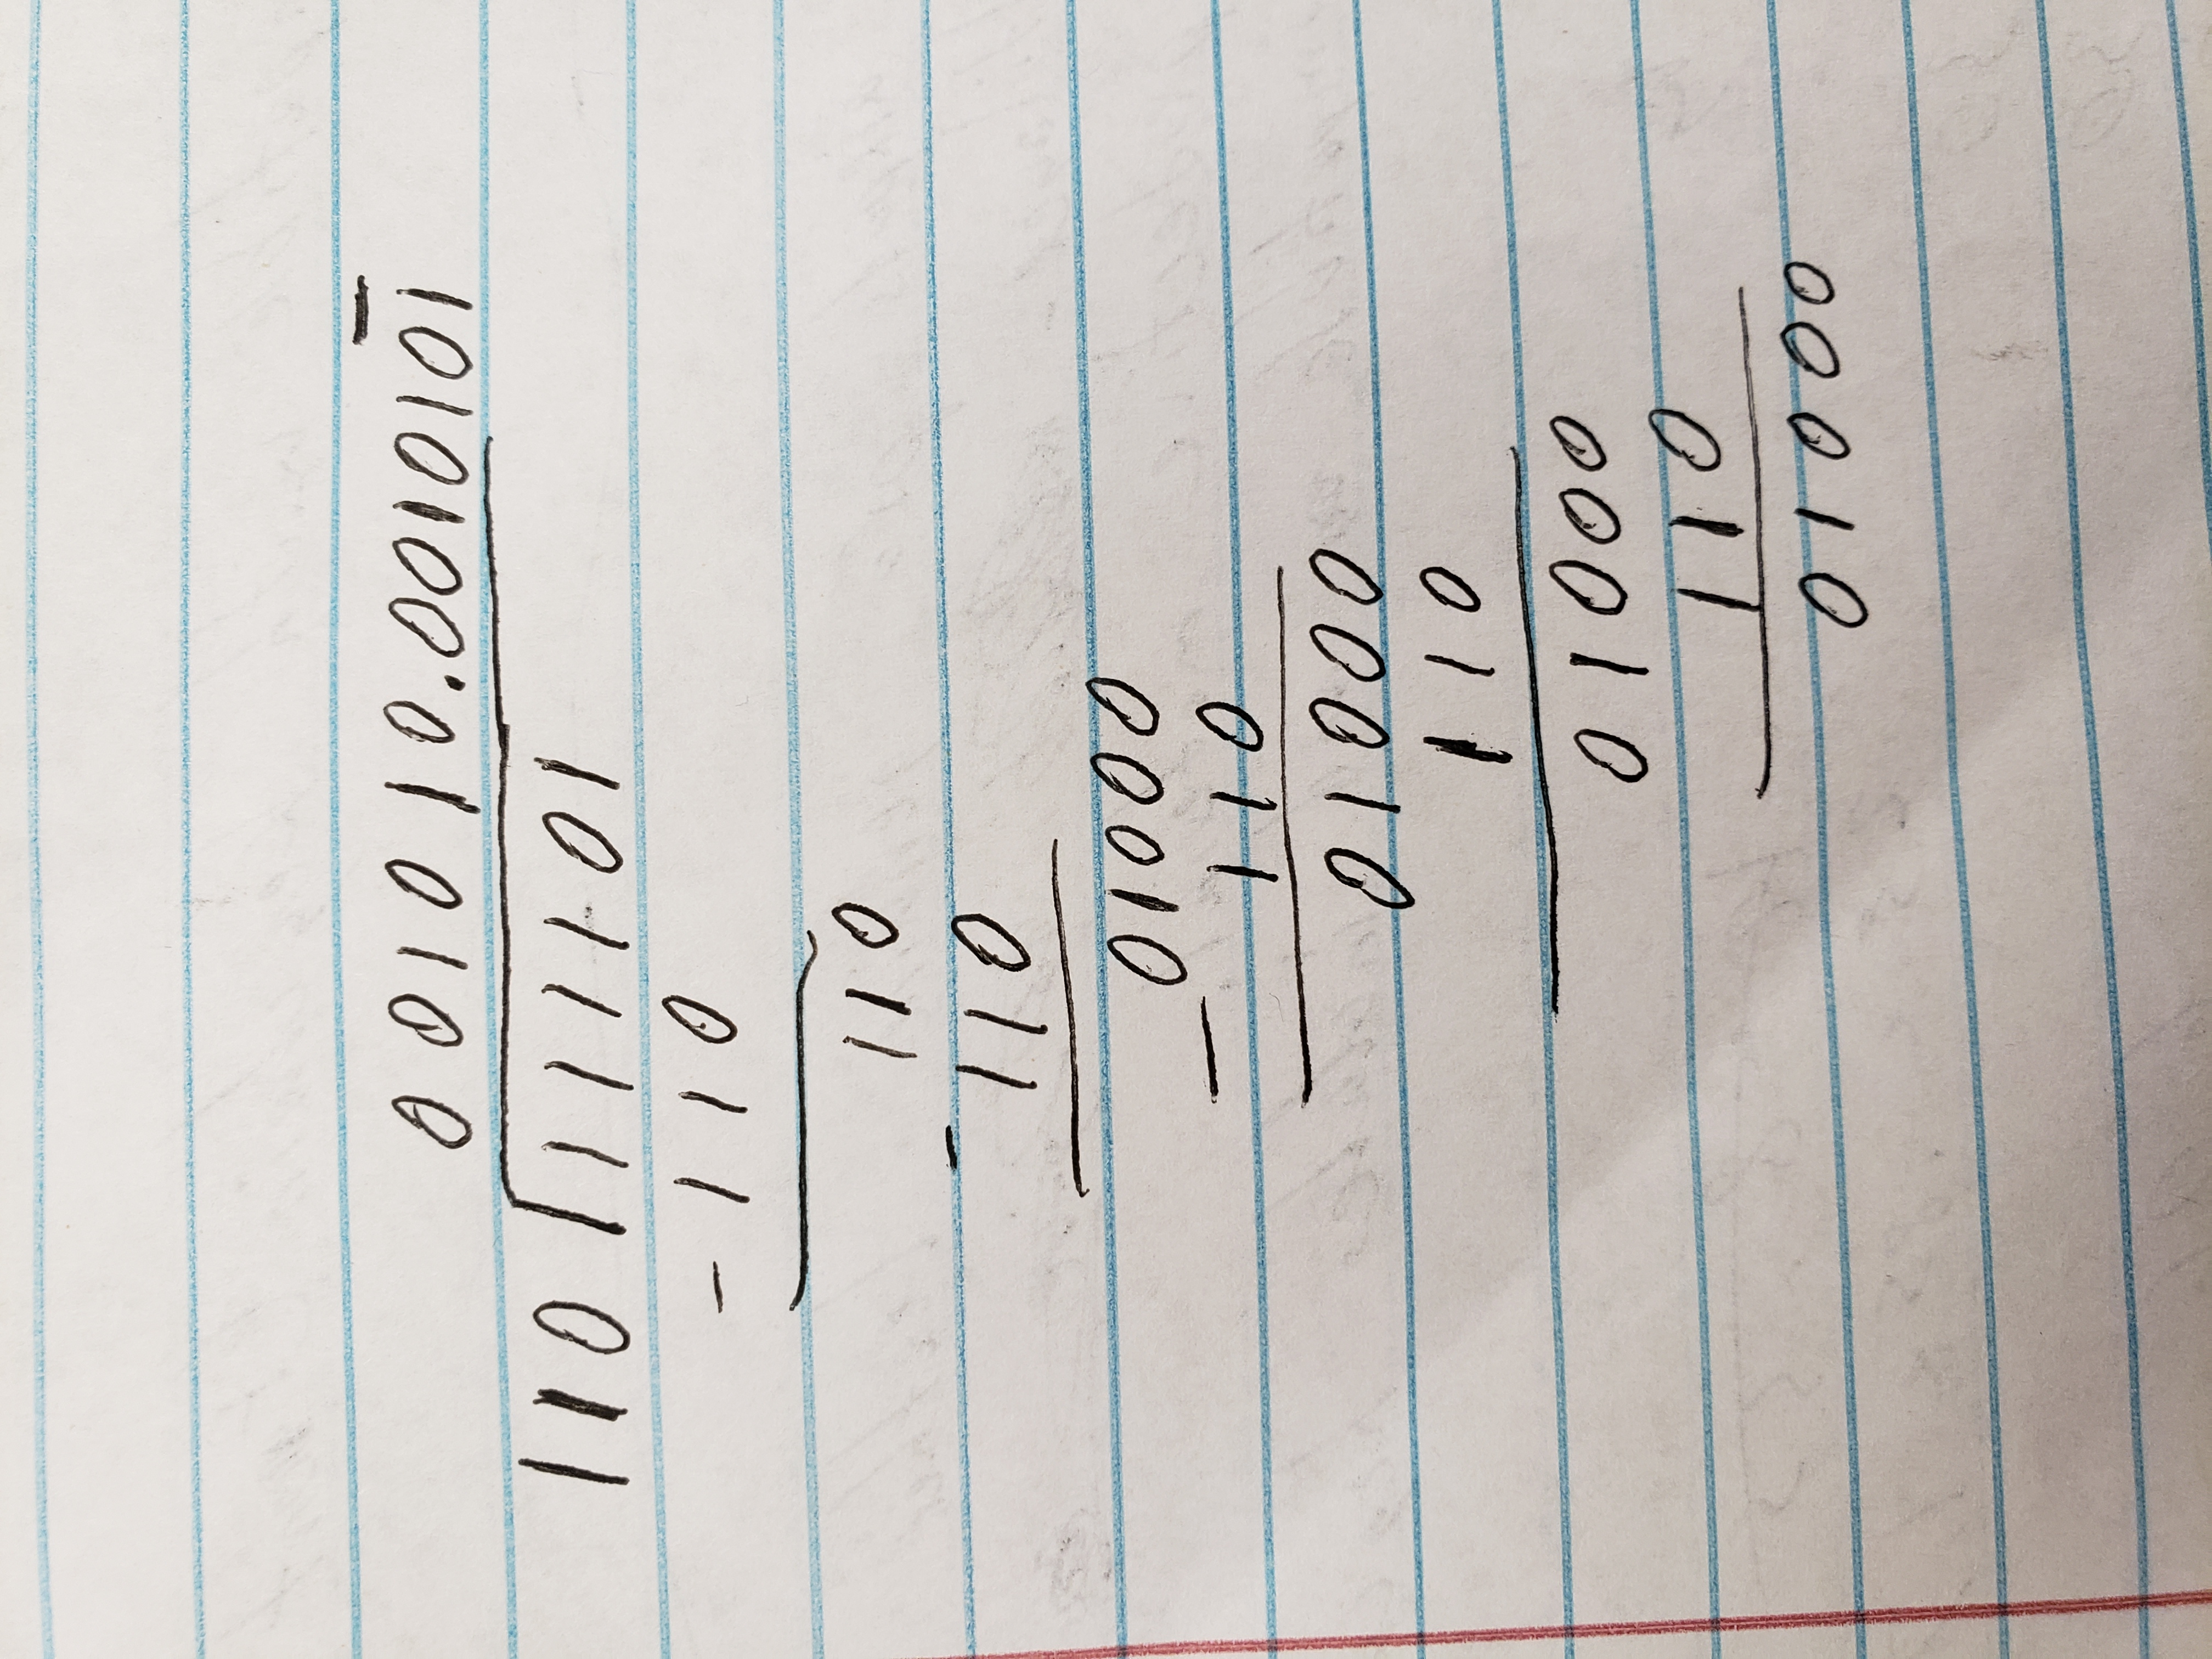 001010.0010101
110 111101
-110
110
-110
01000
-110
01000
110
01000
110
01000